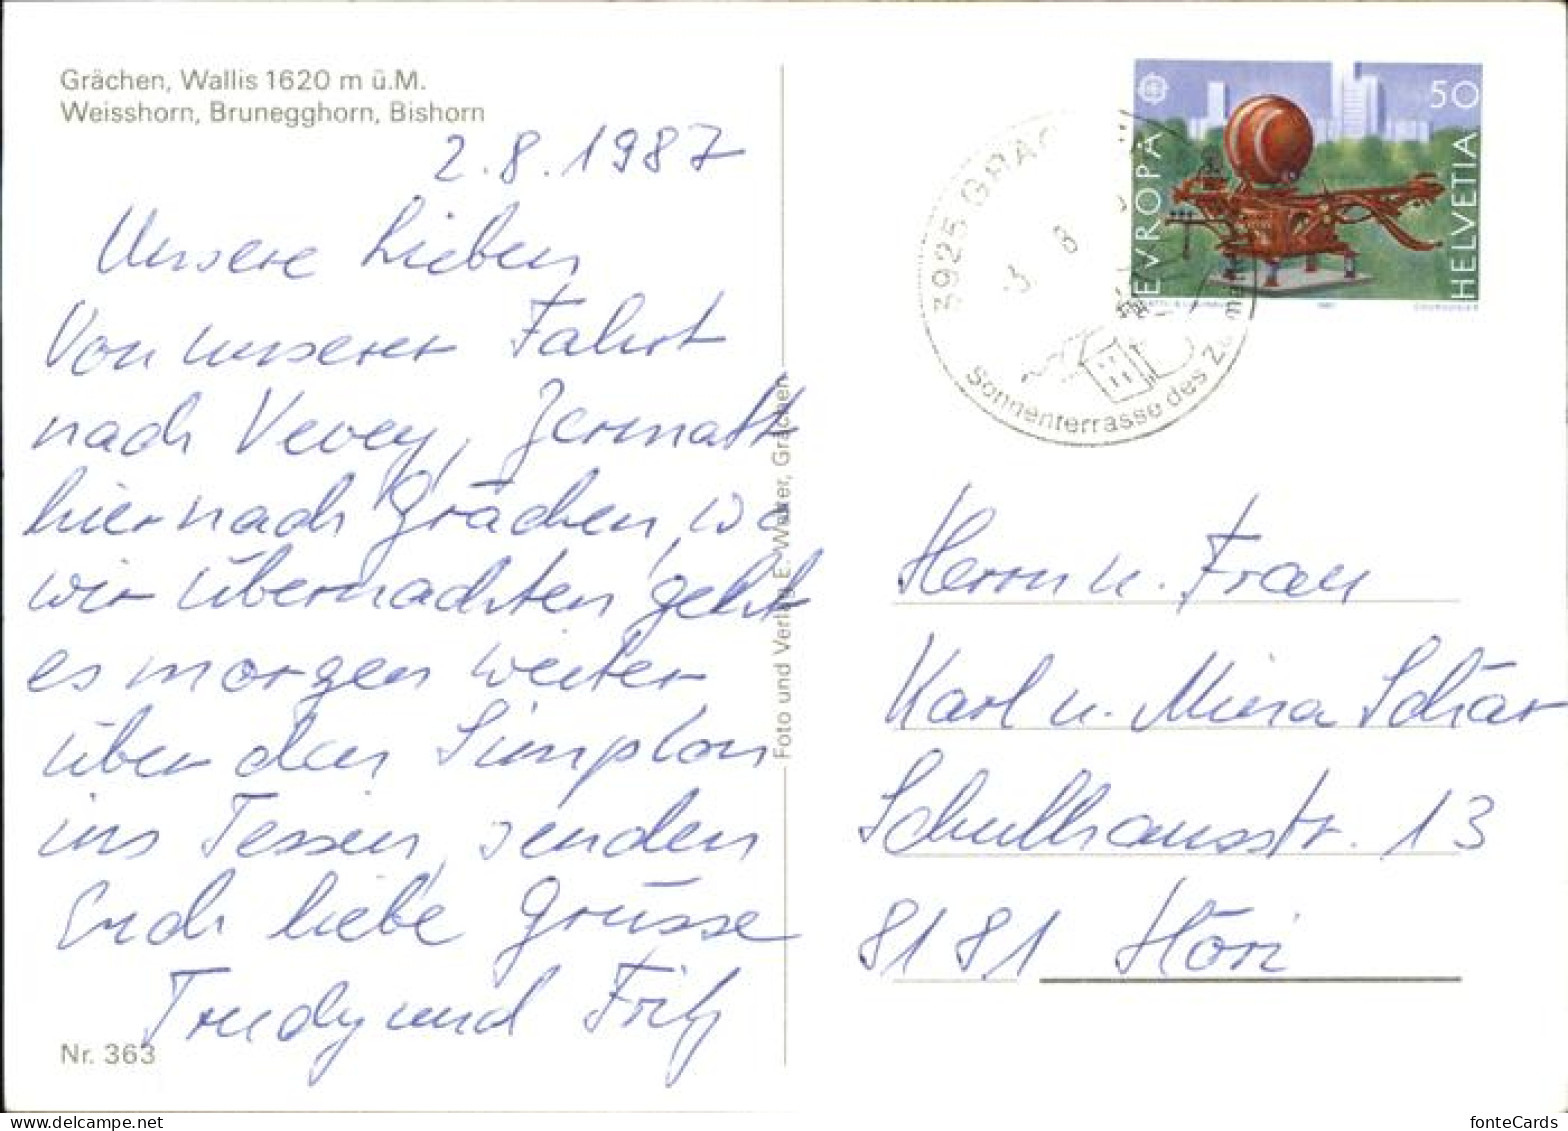 Grächen, Wallis 1620 m ü.M.
Weisshorn, Brunegghorn, Bishorn
2.8.1987
Unsere Lieben
Von unserer Fahrt
nach Vevey, Zermatt
hier nach Grächen, wo
wir übernachten, geht
es morgen weiter
über den Simplon
ins Tessin, senden
Euch liebe Grüsse
Trudy und Fritz
Nr. 363
Foto und Verlag E. Walter, Grächen
EVROPA
50
HELVETIA
1987
COURVOISIER
3925 GRÄC
3. 8
Sonnenterrasse des Z
Herrn u. Frau
Karl u. Mina Schär
Schulhausstr. 13
8181 Höri
fonteCards